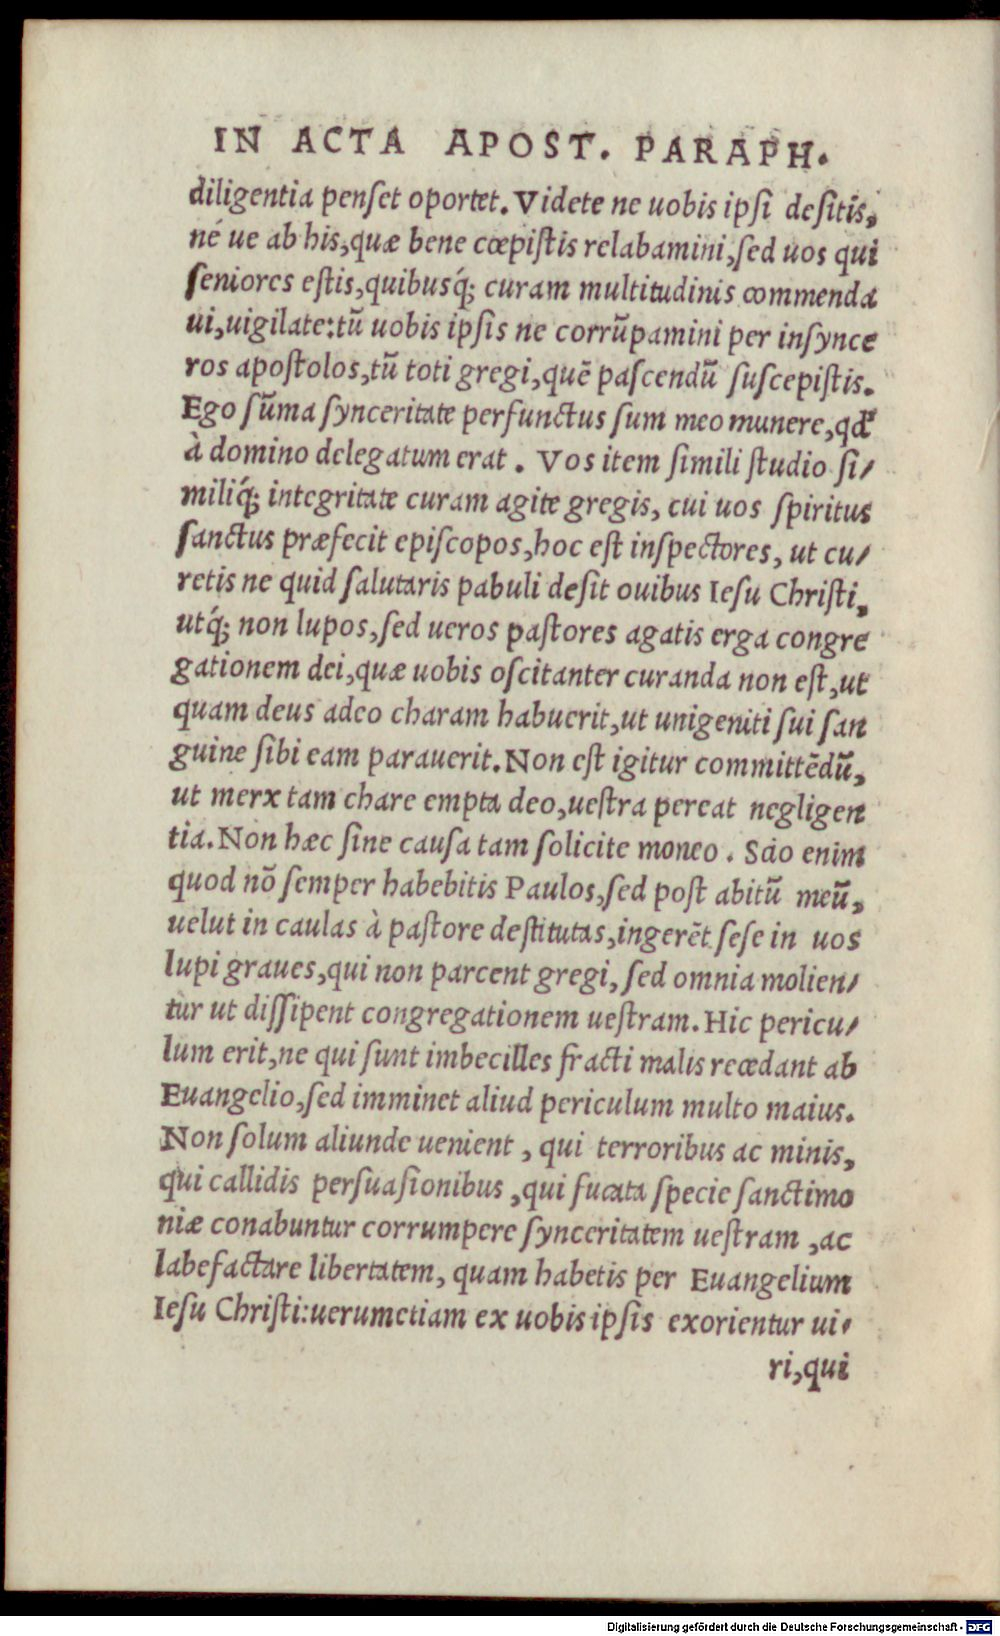 IN ACTA APOST. PARAPH.
diligentia penſet oportet. Videte ne uobis ipſi deſitis,
né ue ab his, quæ bene cœpiſtis relabamini, ſed uos qui
ſeniores eſtis, quibusq́; curam multitudinis commenda
ui, uigilate: tũ uobis ipſis ne corrũpamini per inſynce
ros apoſtolos, tũ toti gregi, quẽ paſcendũ ſuſcepiſtis.
Ego ſũma ſynceritate perfunctus ſum meo munere, qđ
à domino delegatum erat. Vos item ſimili ſtudio ſi/
miliq́; integritate curam agite gregis, cui uos ſpiritus
ſanctus præfecit epiſcopos, hoc eſt inſpectores, ut cu/
retis ne quid ſalutaris pabuli deſit ouibus Ieſu Chriſti,
utq́; non lupos, ſed ueros paſtores agatis erga congre
gationem dei, quæ uobis oſcitanter curanda non eſt, ut
quam deus adeo charam habuerit, ut unigeniti ſui ſan
guine ſibi eam parauerit. Non eſt igitur committẽdũ,
ut merx tam chare empta deo, ueſtra pereat negligen
tia. Non hæc ſine cauſa tam ſolicite moneo. Scio enim
quod nõ ſemper habebitis Paulos, ſed poſt abitũ meũ,
uelut in caulas à paſtore deſtitutas, ingerẽt ſeſe in uos
lupi graues, qui non parcent gregi, ſed omnia molien/
tur ut diſſipent congregationem ueſtram. Hic pericu/
lum erit, ne qui ſunt imbecilles fracti malis recedant ab
Euangelio, ſed imminet aliud periculum multo maius.
Non ſolum aliunde uenient, qui terroribus ac minis,
qui callidis perſuaſionibus, qui fucata ſpecie ſanctimo
niæ conabuntur corrumpere ſynceritatem ueſtram, ac
labefactare libertatem, quam habetis per Euangelium
Ieſu Chriſti: uerumetiam ex uobis ipſis exorientur ui/
ri, qui
Digitalisierung gefördert durch die Deutsche Forschungsgemeinschaft - DFG